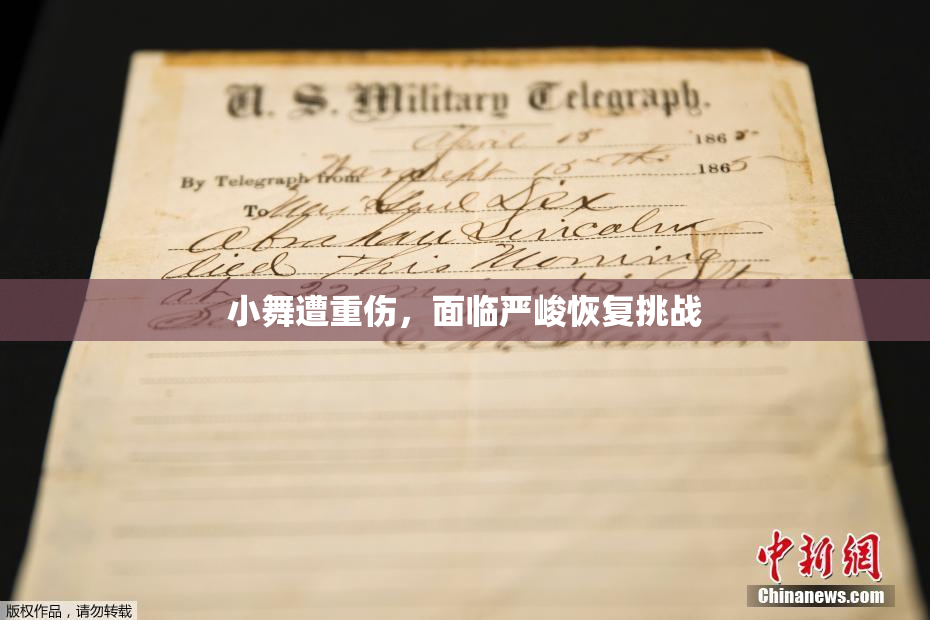 U. S. Military Telegraph.
April 15 1865
By Telegraph from War Dept 15th 1865
To Maj Genl Dix
Abraham Lincoln
died This Morning
at 22 minutes after
小舞遭重伤，面临严峻恢复挑战
E. M. Stanton
中新网
Chinanews.com
版权作品，请勿转载